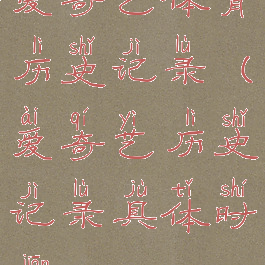 爱奇艺体育
lì shǐ jì lù
历史记录（
ài qí yì lì shǐ
爱奇艺历史
jì lù jù tǐ shí
记录具体时
jiān